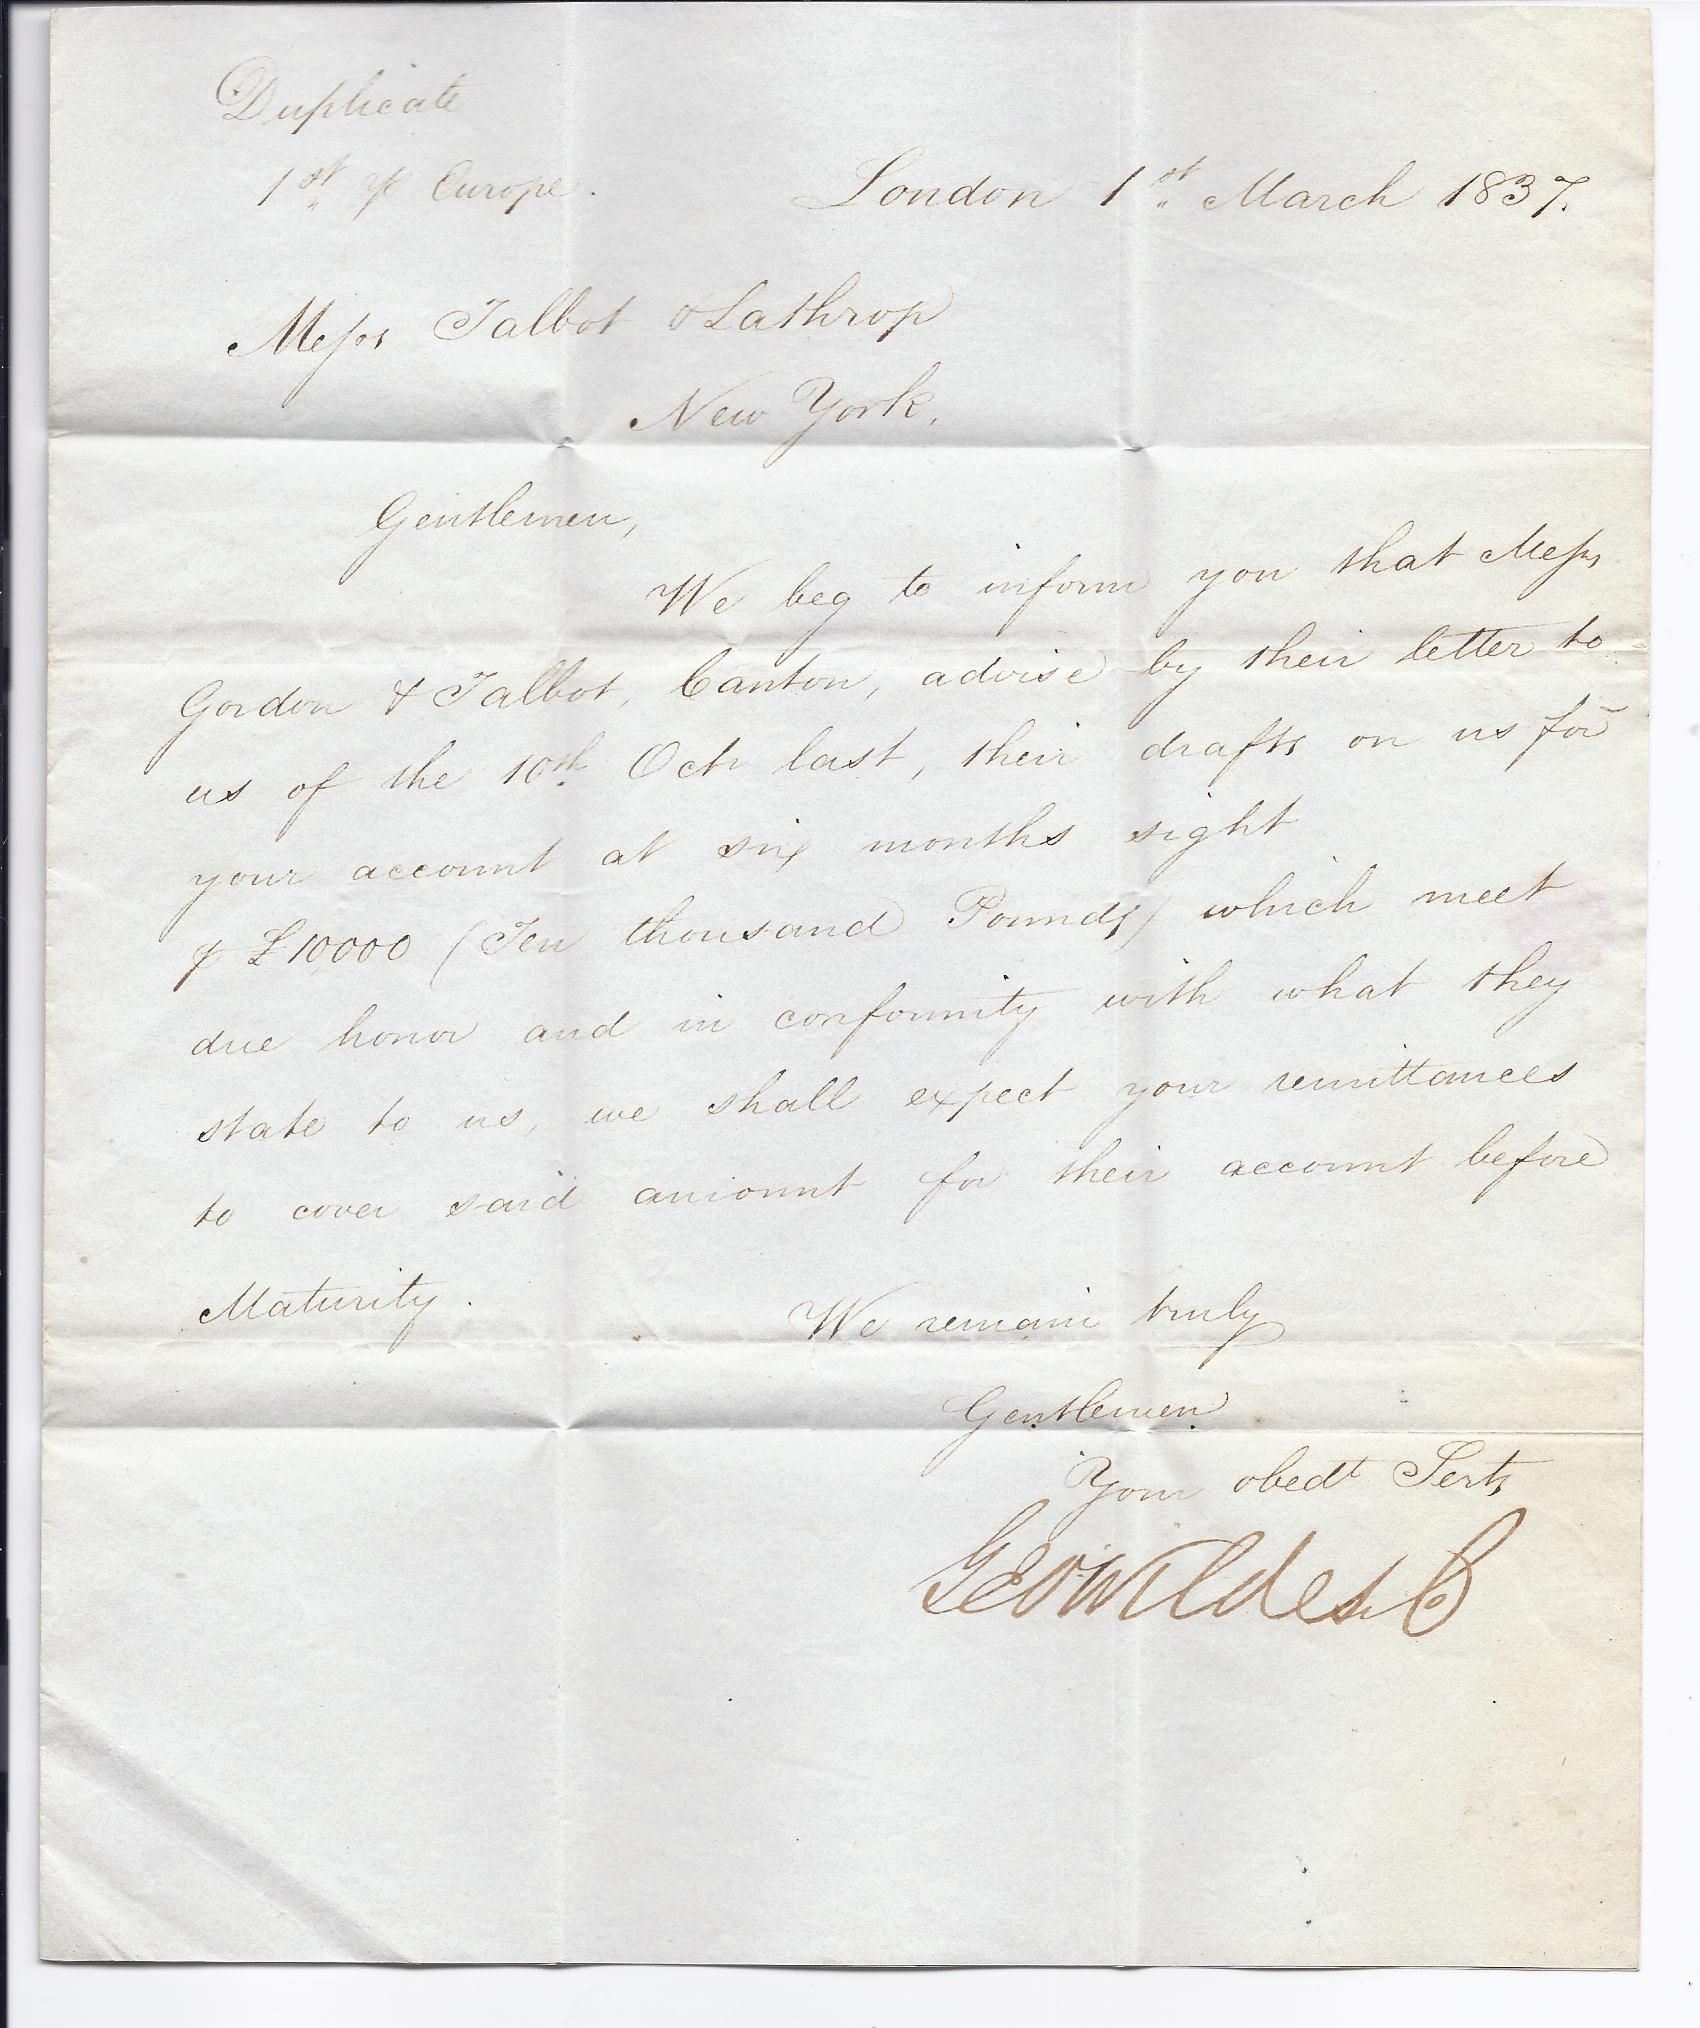 Duplicate
1st pr Europe.
London 1st March 1837.
Messrs Talbot & Lathrop
New York.
Gentlemen,
We beg to inform you that Messrs
Gordon & Talbot, Canton, advise by their letter to
us of the 10th Octr last, their drafts on us for
your account at six months sight
p £10,000 (Ten thousand Pounds) which meet
due honor and in conformity with what they
state to us, we shall expect your remittances
to cover said amount for their account before
Maturity.
We remain truly
Gentlemen
Your obedt Servts
Geo Wildes & Co